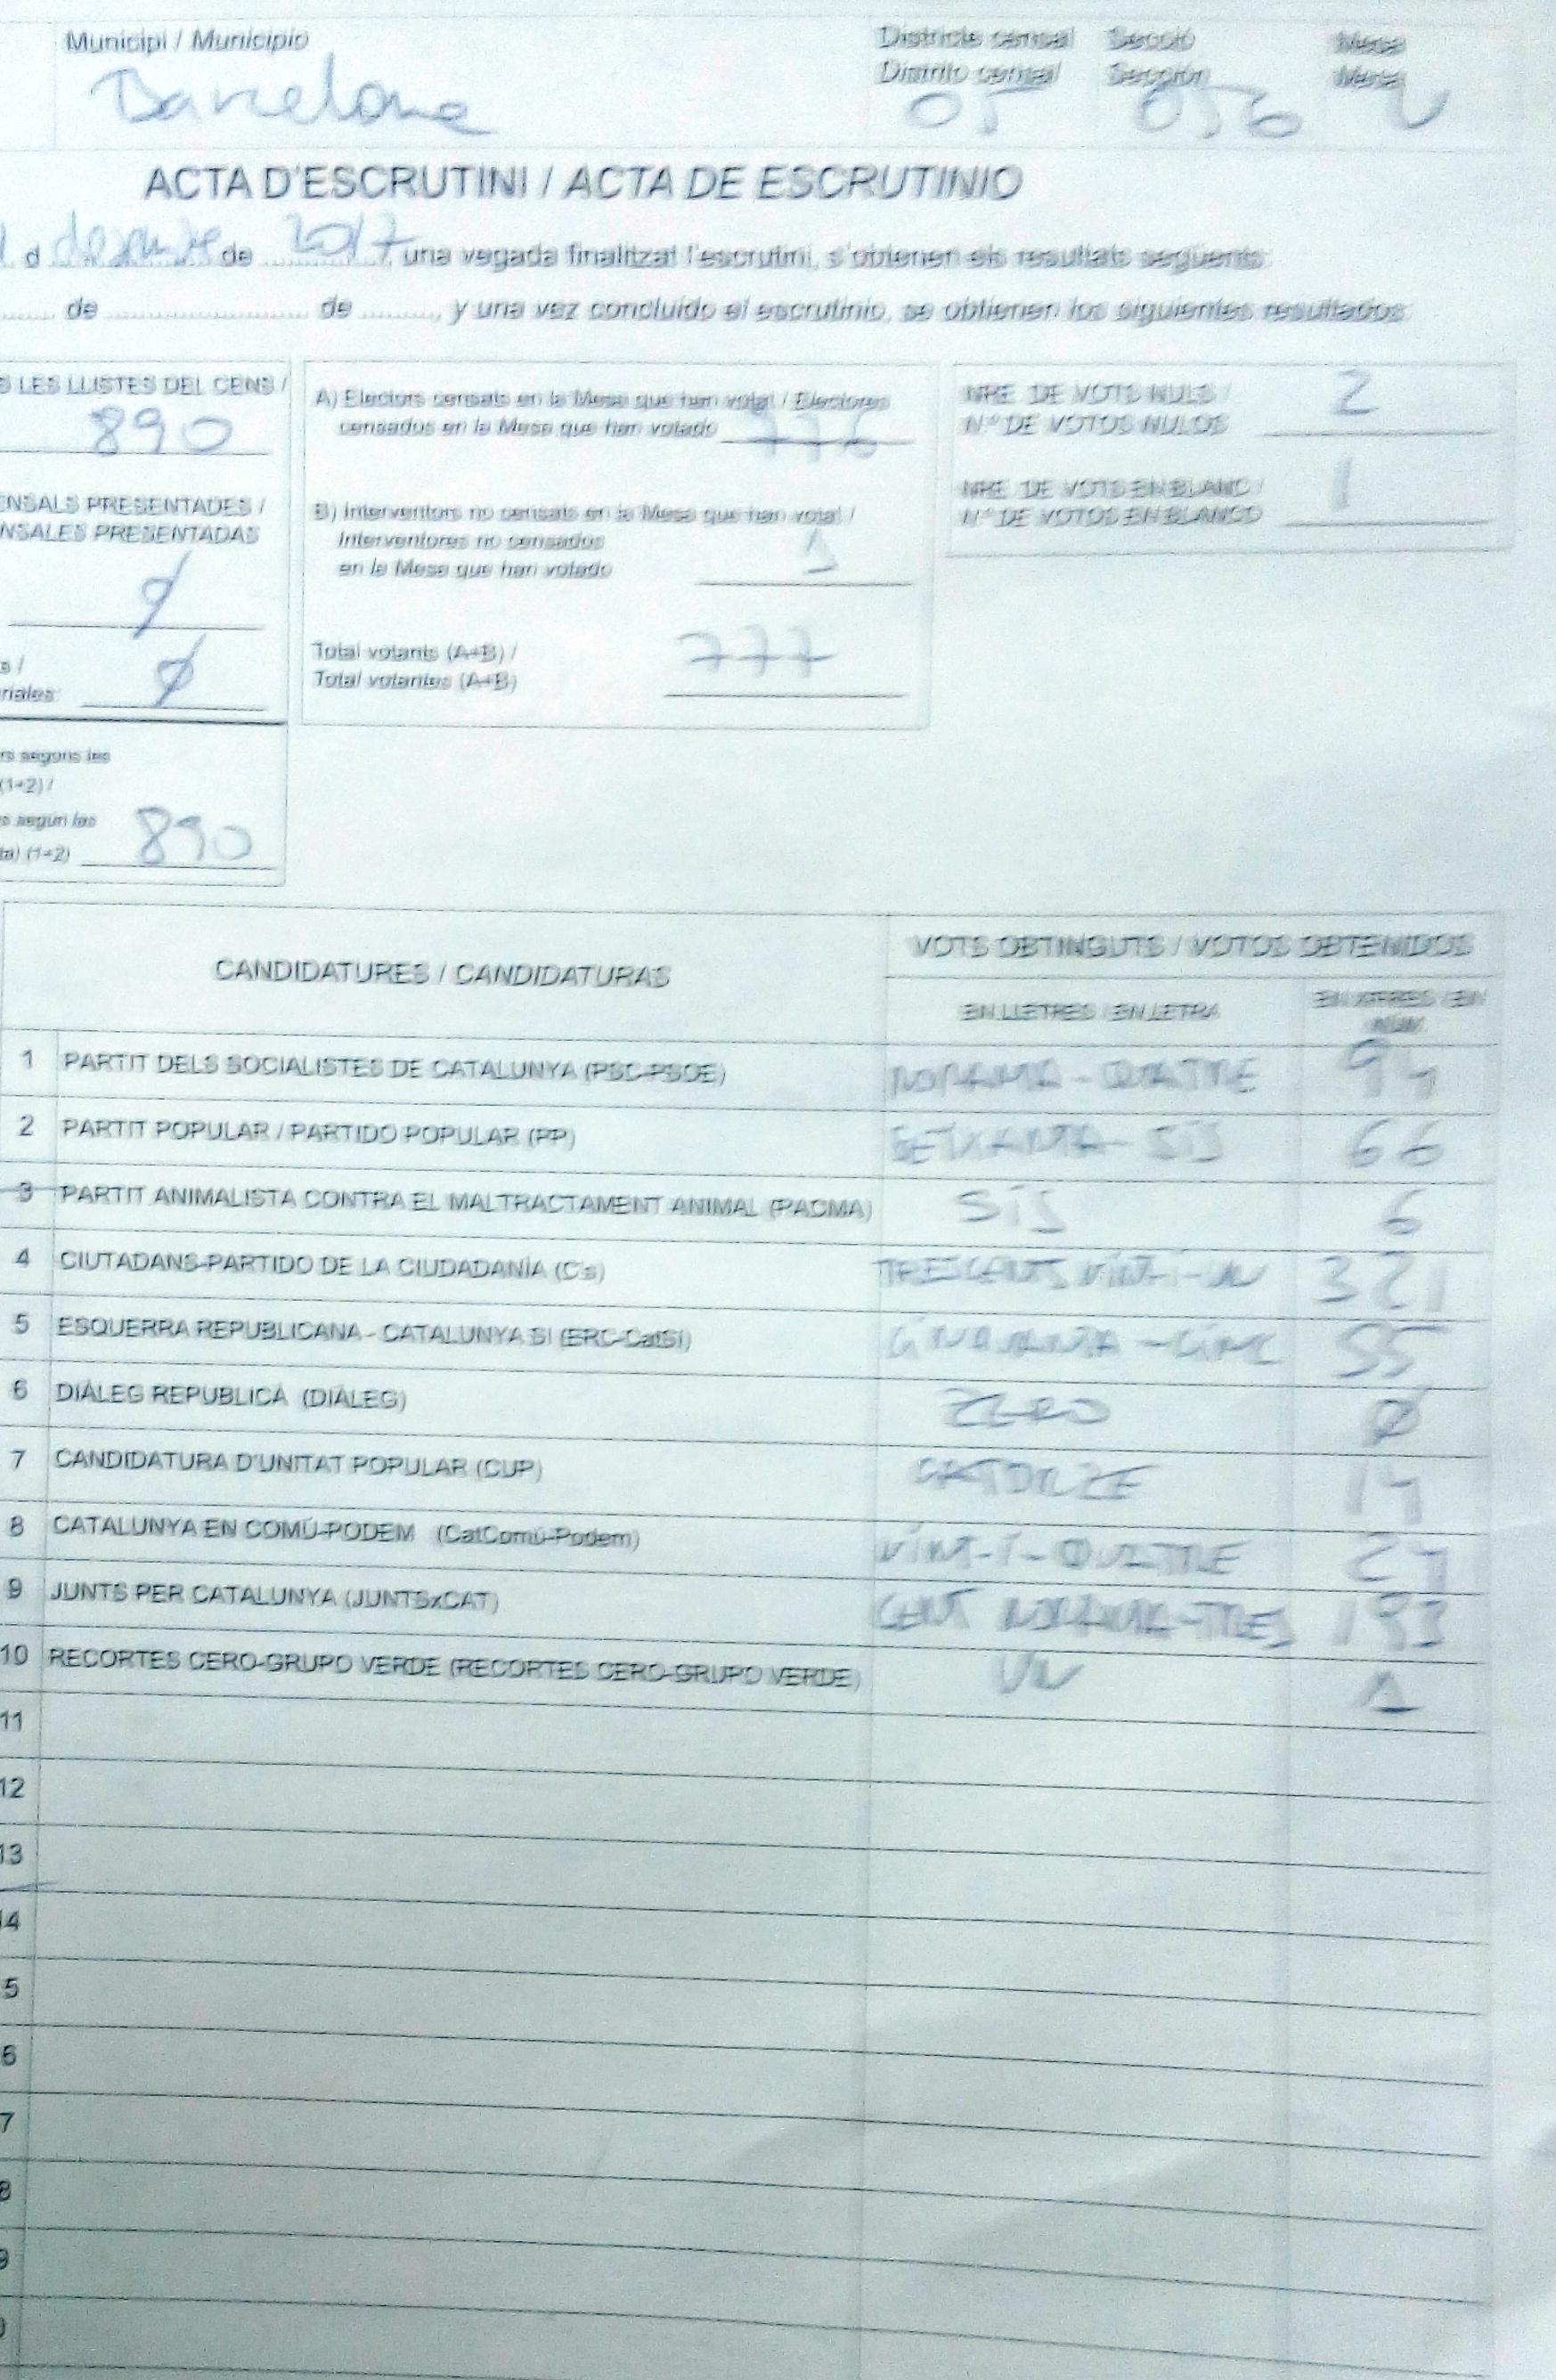 Municipi / Municipio
Districte censal Secció Mesa
Distrito censal Sección Mesa
Barcelona 05 056 U
ACTA D'ESCRUTINI / ACTA DE ESCRUTINIO
d desembre de 2017 una vegada finalitzat l'escrutini, s'obtenen els resultats següents:
de de , y una vez concluido el escrutinio, se obtienen los siguientes resultados:
S LES LLISTES DEL CENS /
890
ENSALS PRESENTADES /
NSALES PRESENTADAS
Ø
s /
riales: Ø
rs segons les
(1+2) /
s según las
ta) (1+2) 890
A) Electors censats en la Mesa que han votat / Electores
censados en la Mesa que han votado 776
B) Interventors no censats en la Mesa que han votat /
Interventores no censados
en la Mesa que han votado 1
Total votants (A+B) /
Total votantes (A+B) 777
NRE. DE VOTS NULS /
N.º DE VOTOS NULOS 2
NRE. DE VOTS EN BLANC /
N.º DE VOTOS EN BLANCO 1
CANDIDATURES / CANDIDATURAS
VOTS OBTINGUTS / VOTOS OBTENIDOS
EN LLETRES / EN LETRA
EN XIFRES / EN
NÚM.
1 PARTIT DELS SOCIALISTES DE CATALUNYA (PSC-PSOE) NORANTA-QUATRE 94
2 PARTIT POPULAR / PARTIDO POPULAR (PP) SEIXANTA-SIS 66
3 PARTIT ANIMALISTA CONTRA EL MALTRACTAMENT ANIMAL (PACMA) SIS 6
4 CIUTADANS-PARTIDO DE LA CIUDADANÍA (C's) TRESCENTS VINT-I-UN 321
5 ESQUERRA REPUBLICANA - CATALUNYA SÍ (ERC-CatSí) CINQUANTA-CINC 55
6 DIÀLEG REPUBLICÀ (DIÀLEG) ZERO Ø
7 CANDIDATURA D'UNITAT POPULAR (CUP) CATORZE 14
8 CATALUNYA EN COMÚ-PODEM (CatComú-Podem) VINT-I-QUATRE 24
9 JUNTS PER CATALUNYA (JUNTSxCAT) CENT NORANTA-TRES 193
10 RECORTES CERO-GRUPO VERDE (RECORTES CERO-GRUPO VERDE) UN 1
11
12
13
14
5
6
7
8
9